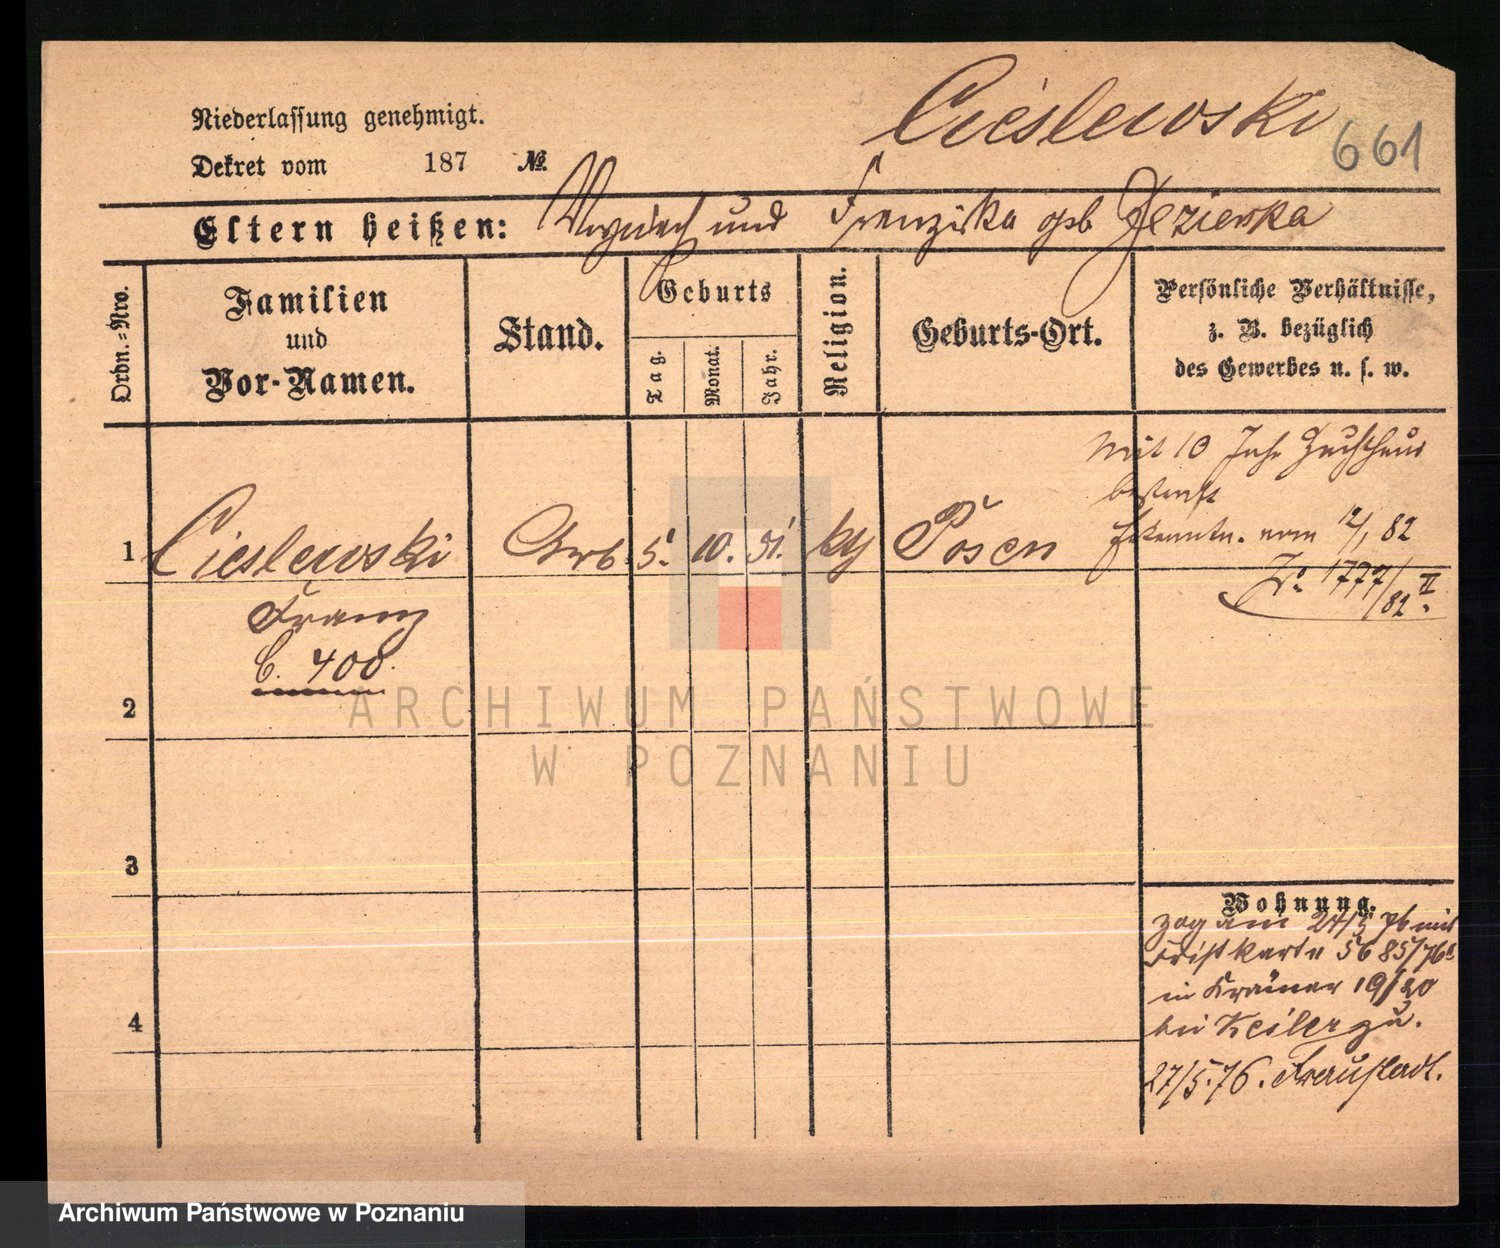 Niederlassung genehmigt.
Dekret vom 187 №
Cieslewski
661
Eltern heißen: und Franziska geb Jezierska
Ordn.-Nro.
Familien
und
Vor-Namen.
Stand.
Geburts
Tag.
Monat.
Jahr.
Religion.
Geburts-Ort.
Persönliche Verhältnisse,
z. B. bezüglich
des Gewerbes u. s. w.
1 Cieslewski Arb. 5. 10. 51. kth Posen
Franz
C. 400.
Mit 10 Jahr Zuchthaus
bestraft
Erkenntn. vom 12/1 82
1777/82 II.
2
3
4
Wohnung.
zog am 24/5 76 mit
Fristkarte 5685/76
in Krämer 19/20
bei Keiler zu.
27/5.76. Fraustadt.
ARCHIWUM PAŃSTWOWE
W POZNANIU
Archiwum Państwowe w Poznaniu